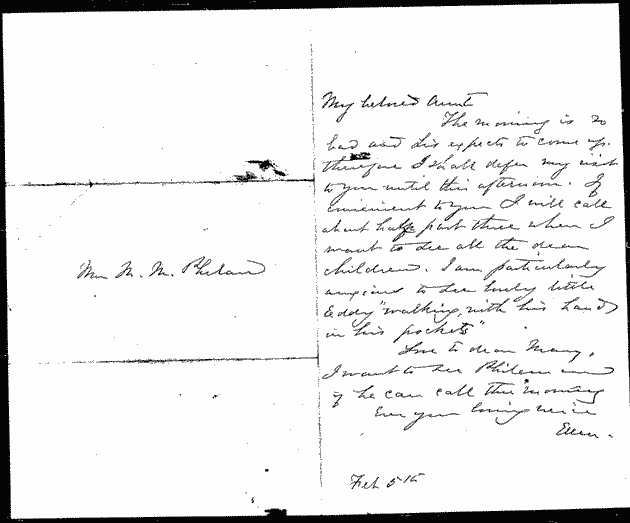 My beloved Aunt
The morning is so
bad and Lis expects to come up.
therefore I shall defer my visit
to you until this afternoon. If
convenient to you I will call
about half past three when I
want to see all the dear
children. I am particularly
anxious to see burly little
Eddy "walking, with his hands
in his pockets"
Love to dear Mary,
I want to see Philem and
if he can call this morning
Ever your loving niece
Ellen.
Feb 5th
Mrs M. M. Phelan